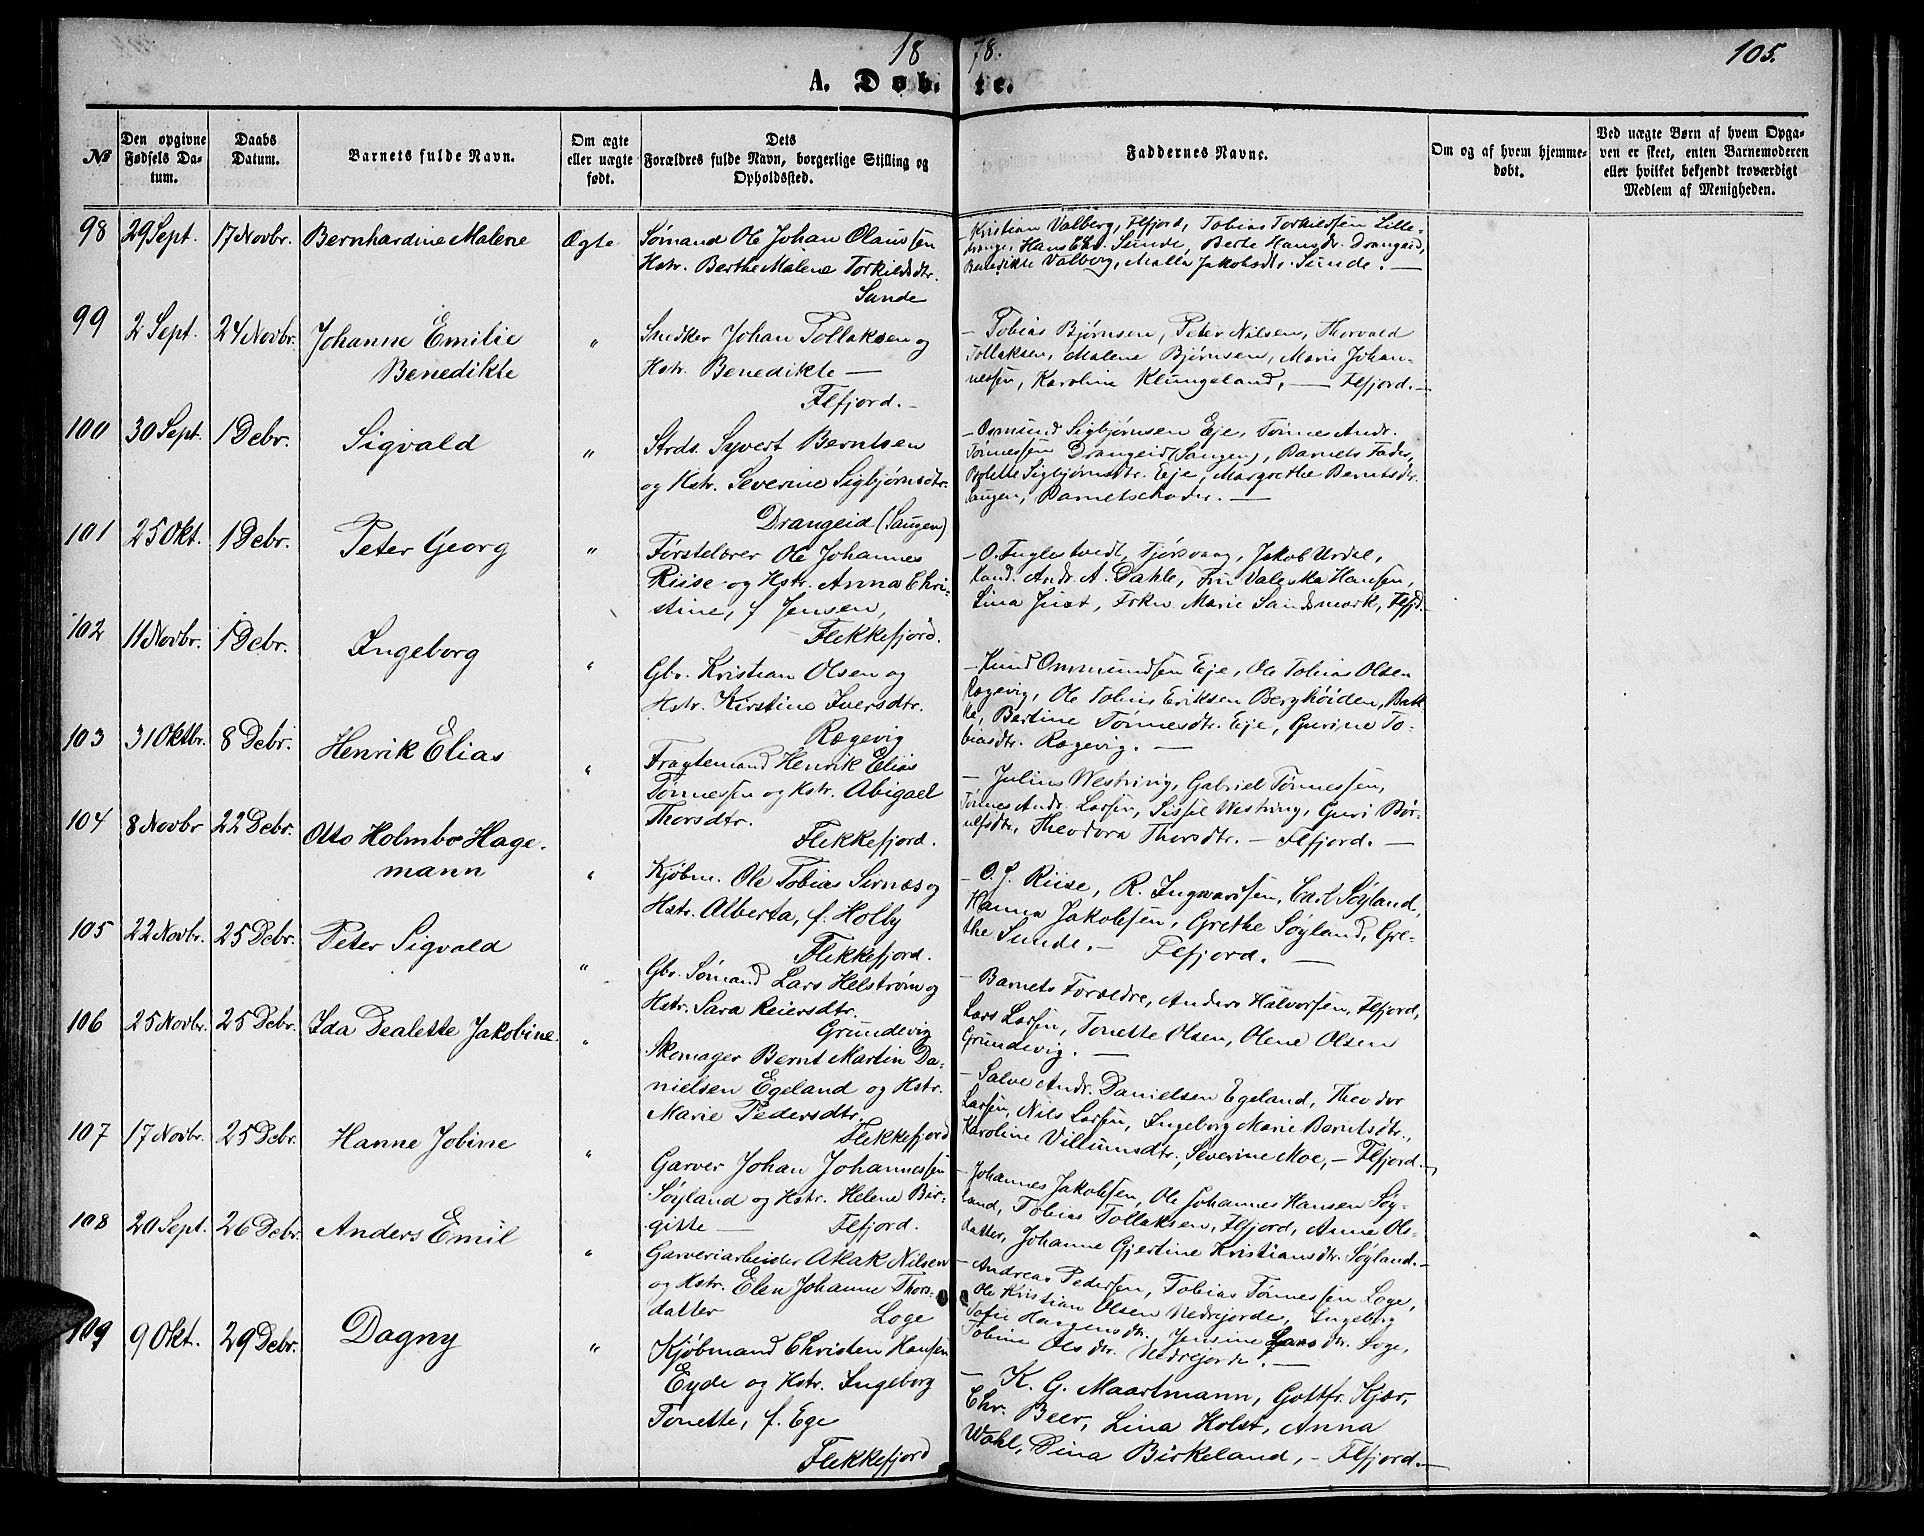 1878.
105.
A. Døbte.
No
Den opgivne Fødsels Da-
tum.
Daabs Datum.
Barnets fulde Navn.
Om ægte eller uægte født.
Dets
Forældres fulde Navn, borgerlige Stilling og
Opholdssted.
Faddernes Navne.
Om og af hvem hjemme-
døbt.
Ved uægte Børn af hvem Opga-
ven er skeet, enten Barnemoderen
eller hvilket bekjendt troværdigt
Medlem af Menigheden.
98 29 Sept. 17 Novbr. Bernhardine Malene Ægte
Sømand Ole Johan Olaussen
Hstr. Berthe Malene Torkildsdtr.
Sunde
Kristian Valberg, Flfjord, Tobias Torkildsen Lille-
Hans Chr. Sunde, Berte Hansdr. Drangeid,
Benedikte Valberg, Malla Jakobsdr. Sunde. —
99 2 Sept. 24 Novbr. Johanne Emilie
Benedikte "
Snedker Johan Tollaksen og
Hstr. Benedikte —
Flfjord. —
— Tobias Bjørnsen, Peter Nilsen, Thorvald
Tollaksen, Malene Bjørnsen, Marie Johan-
nessen, Karoline Klungeland, — Flfjord. —
100 30 Sept. 1 Debr. Sigvald "
Strds. Syvert Berntsen
og Hstr. Severine Sigbjørnsdtr.
Drangeid (Saugen)
— Osmund Sigbjørnsen Eje, Tønnes Andr.
Tønnessen Drangeid (Saugen), Barnets Fader,
Sigbjørnsdtr. Eje, Margrethe Berntsdr.
Saugen, Barnets Moder. —
101 25 Okt. 1 Debr. Peter Georg "
Førstelærer Ole Johannes
Riise og Hstr. Anna Chri-
stine, f Jensen,
Flekkefjord.
— O. Fuglestvedt, Tjørsvaag, Jakob Urdal,
Kand. Andr. A. Dahle, Fru Valeska Hansen,
Lina Just, Frkn Marie Sandsmark, Flfjd.
102 11 Novbr. 1 Debr. Ingeborg "
Gbr. Kristian Olsen og
Hstr. Kirstine Iversdtr.
Rægevig
— Knud Ommundsen Eje, Ole Tobias Olsen
Rægevig, Ole Tobias Eriksen Berghöiden, Bak-
ke, Bertine Tønnesdtr. Eje, Gurine To-
biasdtr. Rægevig. —
103 31 Oktbr. 8 Debr. Henrik Elias "
Fragtemand Henrik Elias
Tønnessen og Hstr. Abigael
Thorsdtr.
Flekkefjord.
— Julius Westring, Gabriel Tønnessen,
Tønnes Andr. Larsen, Sissel Westring, Guri Bør-
ulfsdtr, Theodora Thorsdtr. — Flfjord. —
104 8 Novbr 22 Debr. Otto Holmbo Hage-
mann "
Kjøbm. Ole Tobias Sirnæs og
Hstr. Alberta, f. Holby
Flekkefjord.
— O. J. Riise, R. Ingwardsen, Carl Søyland,
Hanna Jakobsen, Grethe Søyland, Gre-
the Sunde. — Flfjord. —
105 22 Novbr. 25 Debr. Peter Sigvald "
Gbr. Sømand Lars Helstrøm og
Hstr. Sara Reiersdtr.
Grundevig
— Barnets Forældre, Anders Halvorsen, Flfjord,
Lars Larsen, Tonette Olsen, Olene Olsen
Grundevig. —
106 25 Novbr. 25 Debr. Ida Dealette Jakobine "
Skomager Bernt Martin Da-
nielsen Egeland og Hstr.
Marie Pedersdtr.
Flekkefjord
— Salve Andr. Danielsen Egeland, Theodor
Larsen, Nils Larsen, Ingeborg Marie Berntsdtr.,
Karoline Villumsdtr., Severine Moe, — Flfjord. —
107 17 Novbr. 25 Debr. Hanne Jobine "
Garver Johan Johannessen
Søyland og Hstr. Helene Bir-
gitte — Flfjord.
— Johannes Jakobsen, Ole Johannes Hansen Søy-
land, Tobias Tollaksen, Flfjord, Anne Ols-
datter, Johanne Gjertine Kristiansdtr. Søyland. —
108 20 Sept. 26 Debr. Anders Emil "
Garveriarbeider Akak Nilsen
og Hstr. Elen Johanne Thors-
datter Loge
— Andreas Pedersen, Tobias Tønnessen Loge,
Ole Kristian Olsen Nedrejorde, Ingeborg
Sofie Hansensdtr., Jensine Larsdtr. Loge,
Tobine Olsdtr. Nedrejorde. —
109 9 Okt. 29 Debr. Dagny "
Kjøbmand Christen Hansen
Eyde og Hstr. Ingeborg
Tonette, f. Ege
Flekkefjord
— K. G. Maartmann, Gottfr. Kjær,
Chr. Beer, Lina Holst, Anna
Wahl, Dina Birkeland, — Flfjord. —